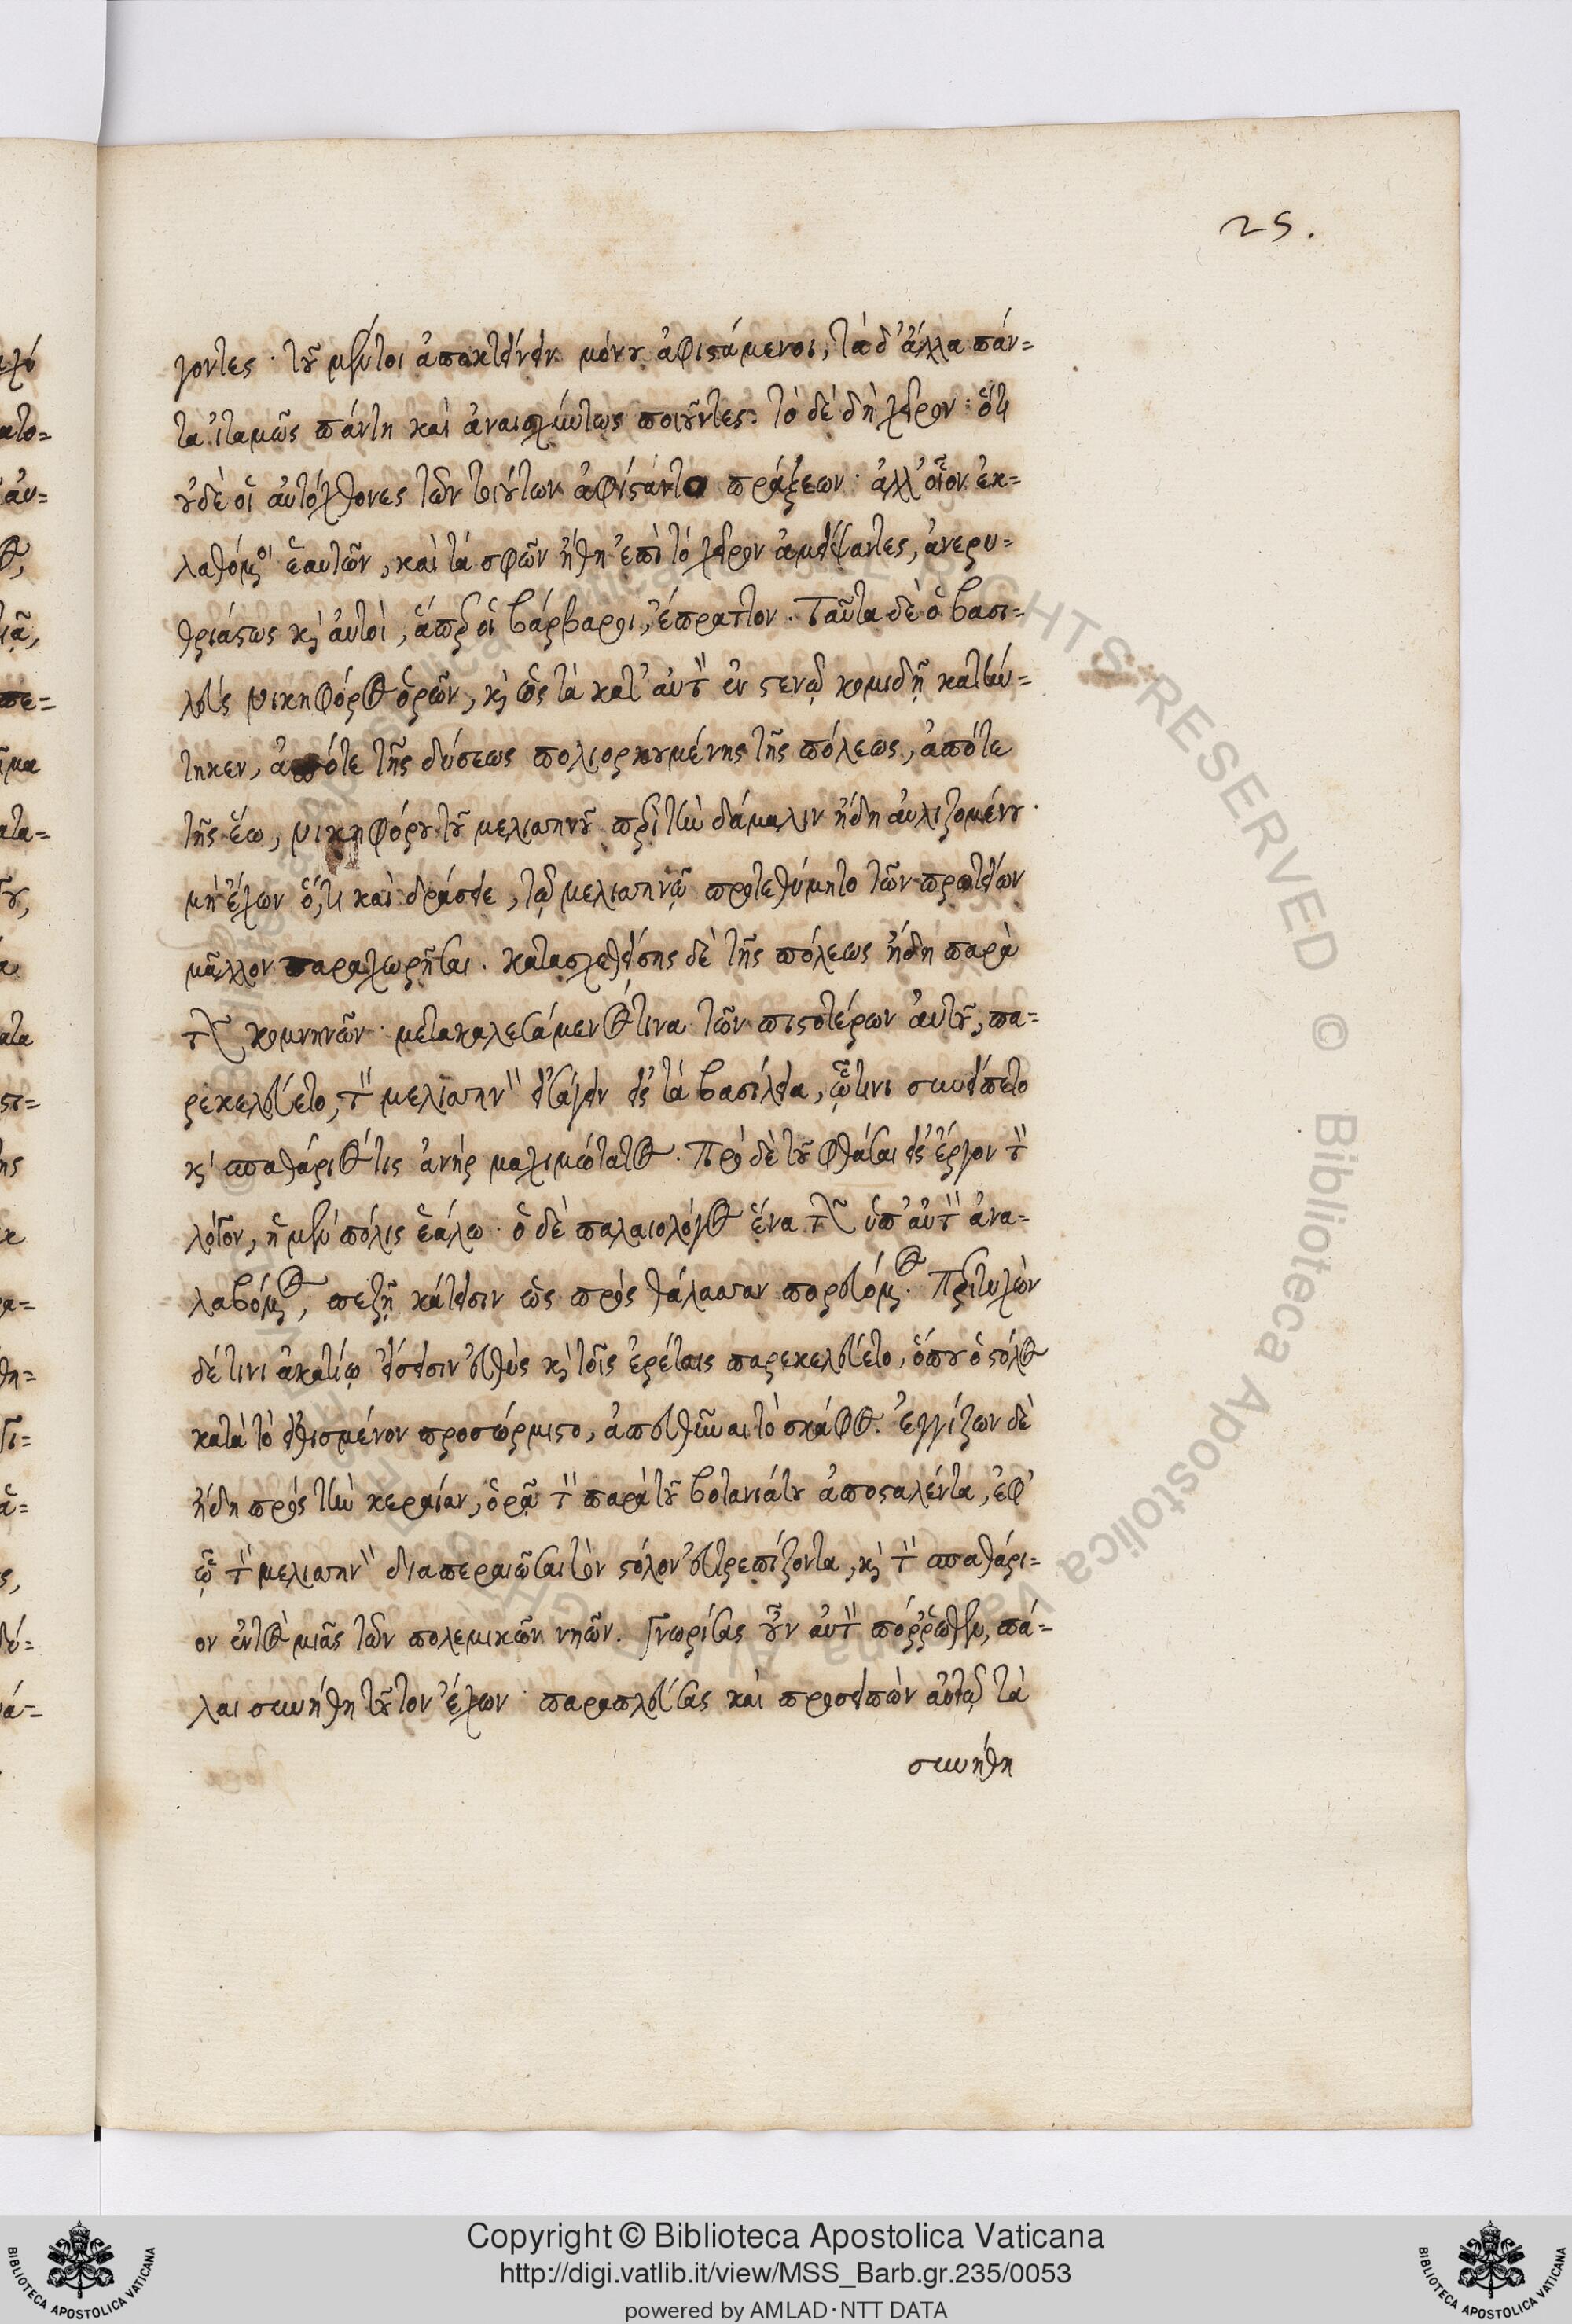 25.
γοντες· τοῦ μέντοι ἀποκτείνειν μόνου ἀφιστάμενοι, τὰ δ' ἄλλα πάν=
τα ἰταμῶς πάντη καὶ ἀναισχύντως ποιοῦντες· τὸ δὲ δὴ χεῖρον· ὅτι
οὐδὲ οἱ αὐτόχθονες τῶν τοιούτων ἀφίσταντο πράξεων· ἀλλ' οἷον ἐκ=
λαθόμενοι ἑαυτῶν, καὶ τὰ σφῶν ἤθη ἐπὶ τὸ χεῖρον ἀμείψαντες, ἀνερυ=
θριάστως κ αὐτοὶ, ἅπερ οἱ βάρβαροι, ἔπραττον. Ταῦτα δὲ ὁ βασι=
λεὺς νικηφόρος ὁρῶν, κ ὡς τὰ κατ' αὐτὸν ἐν στενῷ κομιδῇ κατήν=
τηκεν, ἀπότε τῆς δύσεως πολιορκουμένης τῆς πόλεως, ἀπότε
τῆς ἕω, νικηφόρου τοῦ μελισσηνοῦ περὶ τὴν δάμαλιν ἤδη αὐλιζομένου·
μὴ ἔχων ὅ,τι καὶ δράσειε, τῷ μελισσηνῷ προτεθύμητο τῶν πρωτείων
μᾶλλον παραχωρῆσαι. κατασχεθείσης δὲ τῆς πόλεως ἤδη παρὰ
τῶν κομνηνῶν· μετακαλεσάμενός τινα τῶν πιστοτέρων αὐτοῦ, πα=
ρεκελεύετο, τὸν μελισσηνὸν εἰσάγειν εἰς τὰ βασίλεια, ᾧτινι συνείπετο
κ σπαθάριός τις ἀνὴρ μαχιμώτατος. Πρὸ δὲ τοῦ φθάσαι εἰς ἔργον τὸν
λόγον, ἡ μὲν πόλις ἑάλω· ὁ δὲ παλαιολόγος ἕνα τῶν ὑπ' αὐτὸν ἀνα=
λαβόμενος, πεζῇ κάτεισιν ὡς πρὸς θάλασσαν παρευόμενος. Περιτυχὼν
δέ τινι ἀκατίῳ εἴσεισιν εὐθὺς κ τοῖς ἐρέταις παρεκελεύετο, ὅπου ὁ στόλος
κατὰ τὸ εἰθισμένον προσώρμιστο, ἀπευθῦναι τὸ σκάφος. Ἐγγίζων δὲ
ἤδη πρὸς τὴν κεραίαν, ὁρᾷ τὸν παρὰ τοῦ βοτανιάτου ἀποσταλέντα, ἐφ'
ᾧ τὸν μελισσηνὸν διαπεραιῶσαι τὸν στόλον εὐτρεπίζοντα, κ τὸν σπαθάρι=
ον ἐντὸς μιᾶς τῶν πολεμικῶν νηῶν. Γνωρίσας οὖν αὐτὸν πόῤῥωθεν, πά=
λαι συνήθη τοῦτον ἔχων· παραπλεύσας καὶ προσειπὼν αὐτῷ τὰ
συνήθη
Copyright © Biblioteca Apostolica Vaticana
http://digi.vatlib.it/view/MSS_Barb.gr.235/0053
powered by AMLAD·NTT DATA